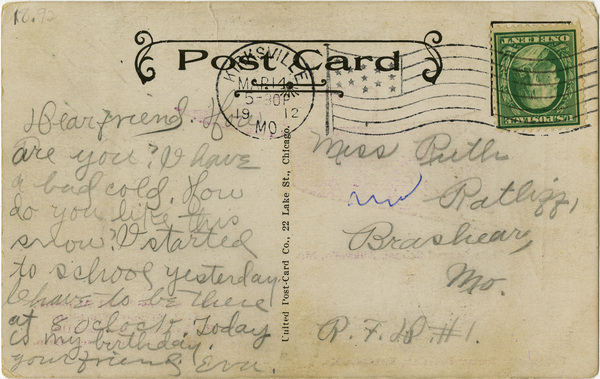 18.92
Post Card
KIRKSVILLE
MAR 14
5-30P
19 12
MO.
ONE CENT
U.S. POSTAGE
Dear friend. How
are you? I have
a bad cold. How
do you like this
snow? I started
to school yesterday.
I have to be there
at 8 oclock. Today
is my birthday.
your friend, Eva.
United Post-Card Co., 22 Lake St., Chicago.
Miss Ruth
Ratliff,
Brashear,
Mo.
R. F. D. #1.